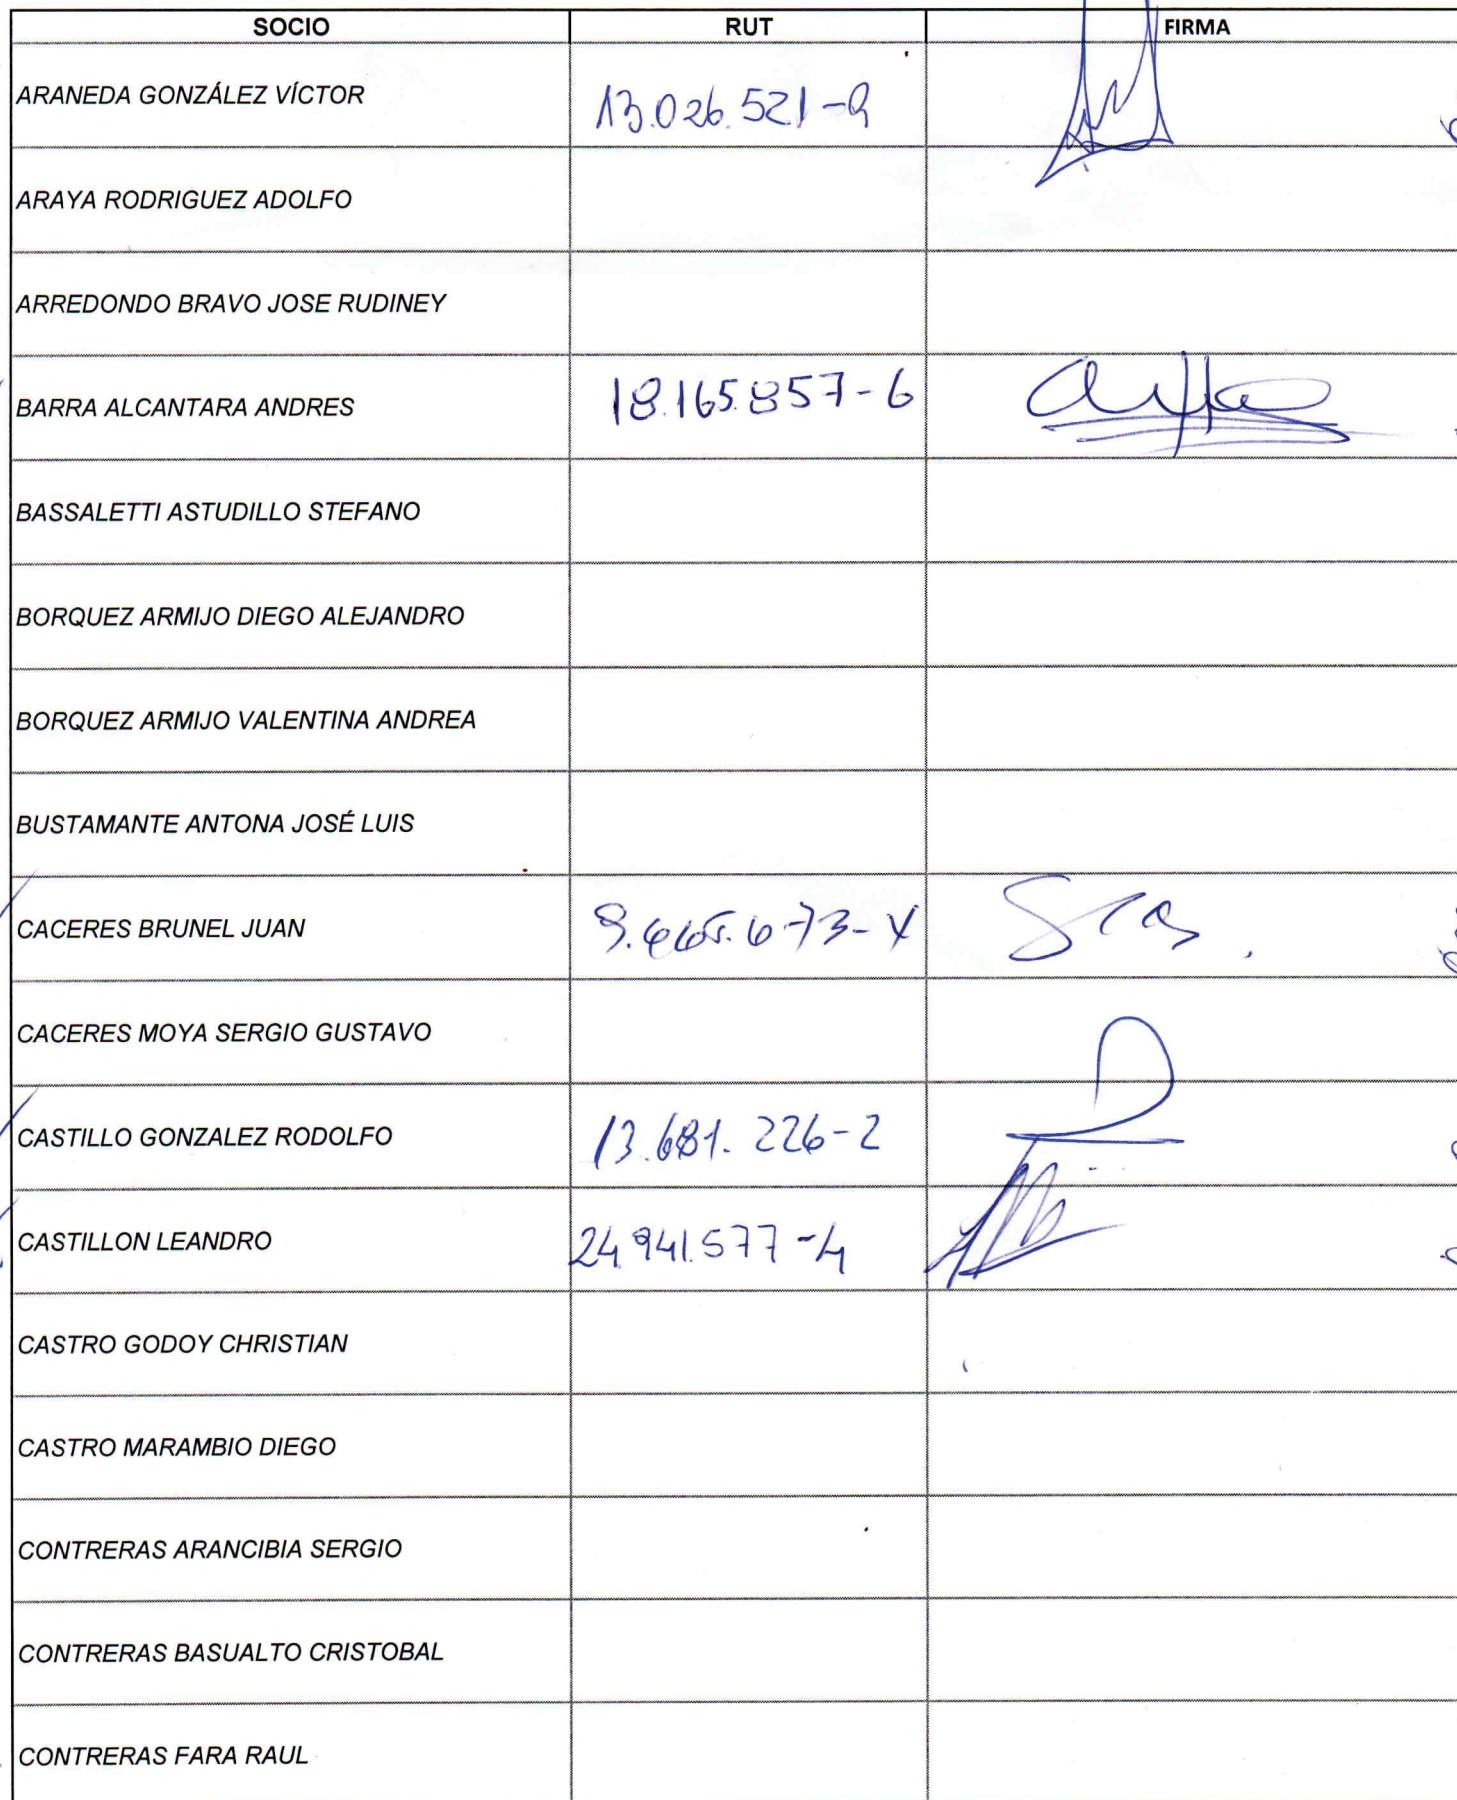 SOCIO RUT FIRMA
ARANEDA GONZÁLEZ VÍCTOR 13.026.521-9
ARAYA RODRIGUEZ ADOLFO
ARREDONDO BRAVO JOSE RUDINEY
BARRA ALCANTARA ANDRES 18.165.857-6
BASSALETTI ASTUDILLO STEFANO
BORQUEZ ARMIJO DIEGO ALEJANDRO
BORQUEZ ARMIJO VALENTINA ANDREA
BUSTAMANTE ANTONA JOSÉ LUIS
CACERES BRUNEL JUAN
CACERES MOYA SERGIO GUSTAVO
CASTILLO GONZALEZ RODOLFO 13.681.226-2
CASTILLON LEANDRO 24.941.577-4
CASTRO GODOY CHRISTIAN
CASTRO MARAMBIO DIEGO
CONTRERAS ARANCIBIA SERGIO
CONTRERAS BASUALTO CRISTOBAL
CONTRERAS FARA RAUL